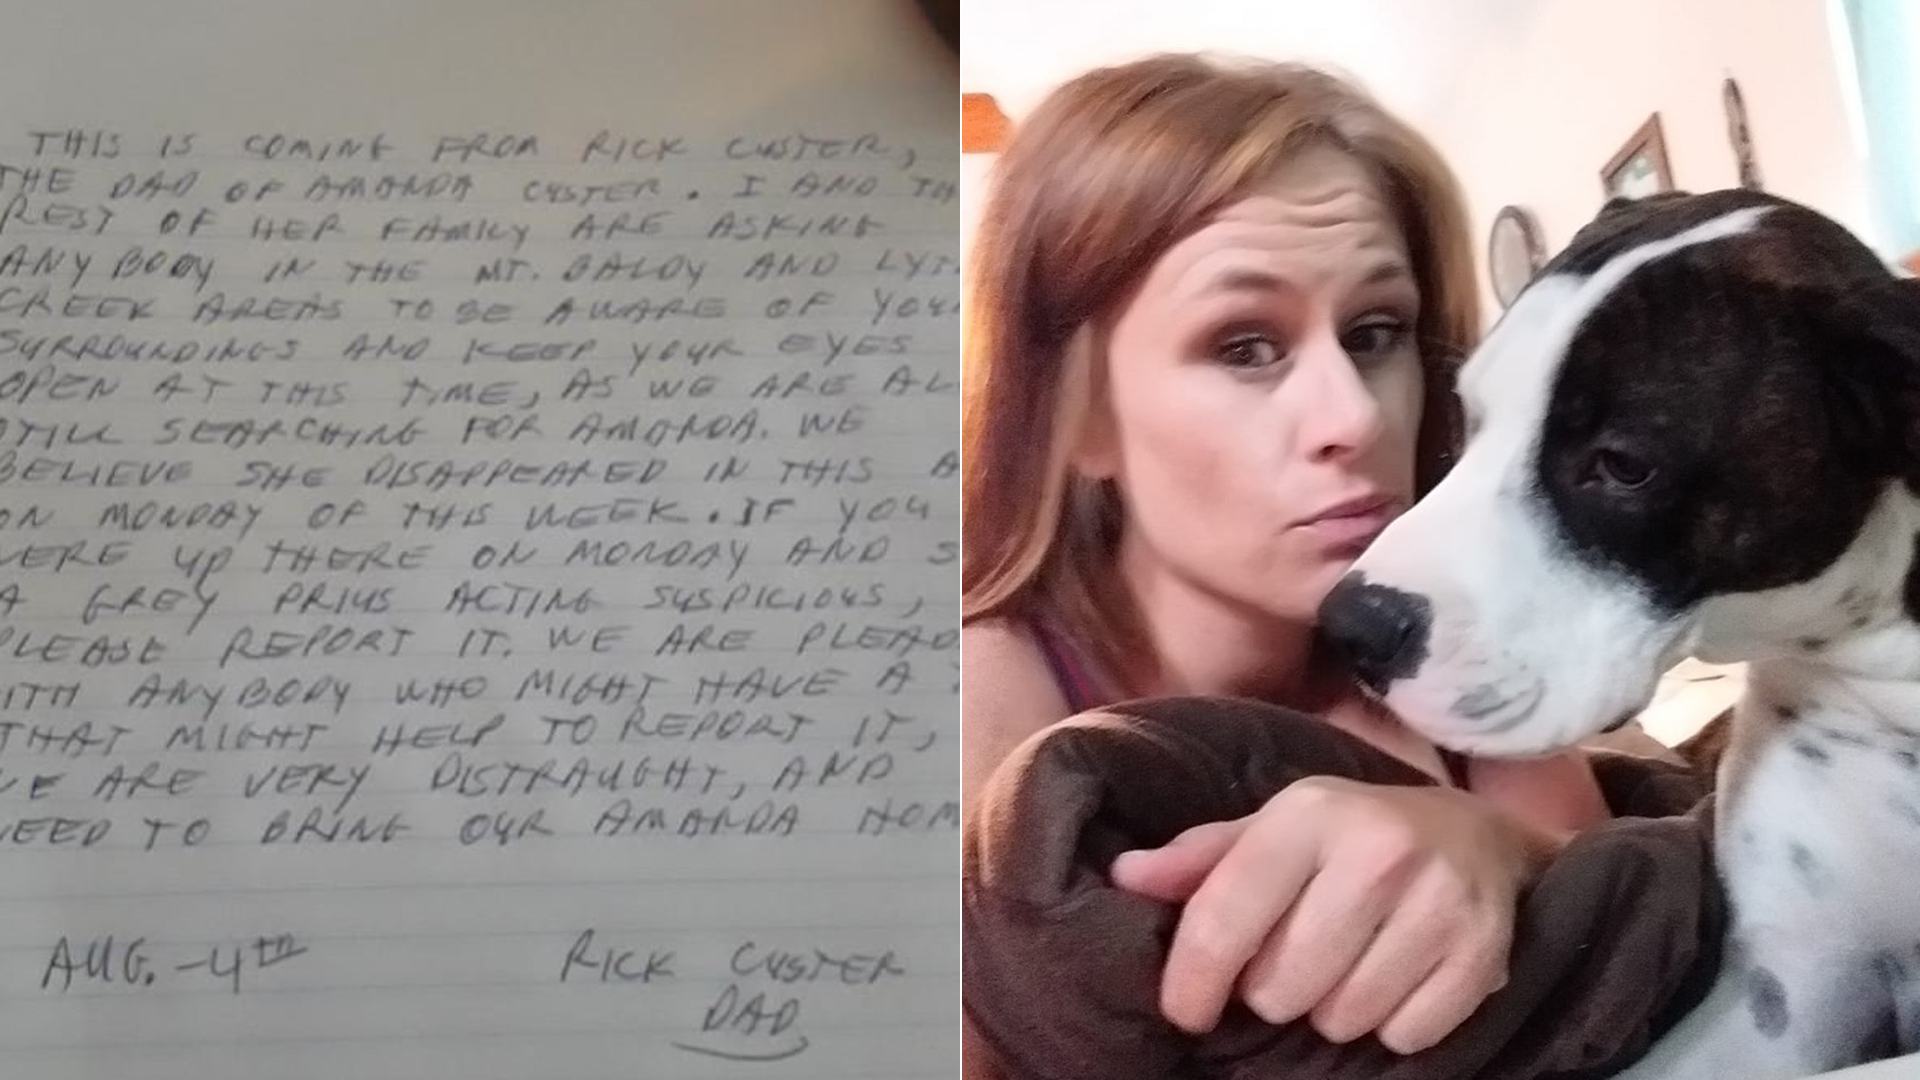 THIS IS COMING FROM RICK CUSTER,
THE DAD OF AMANDA CUSTER. I AND
REST OF HER FAMILY ARE ASKING
ANYBODY IN THE MT. BALDY AND
CREEK AREAS TO BE AWARE OF
SURROUNDINGS AND KEEP YOUR EYES
OPEN AT THIS TIME, AS WE ARE
STILL SEARCHING FOR AMANDA. WE
BELIEVE SHE DISAPPEARED IN THIS
ON MONDAY OF THIS WEEK. IF YOU
WERE UP THERE ON MONDAY AND
A GREY PRIUS ACTING SUSPICIOUS,
PLEASE REPORT IT. WE ARE
ANYBODY WHO MIGHT HAVE A
THAT MIGHT HELP TO REPORT IT,
WE ARE VERY DISTRAUGHT, AND
NEED TO BRING OUR AMANDA
AUG. -4TH
RICK CUSTER
DAD